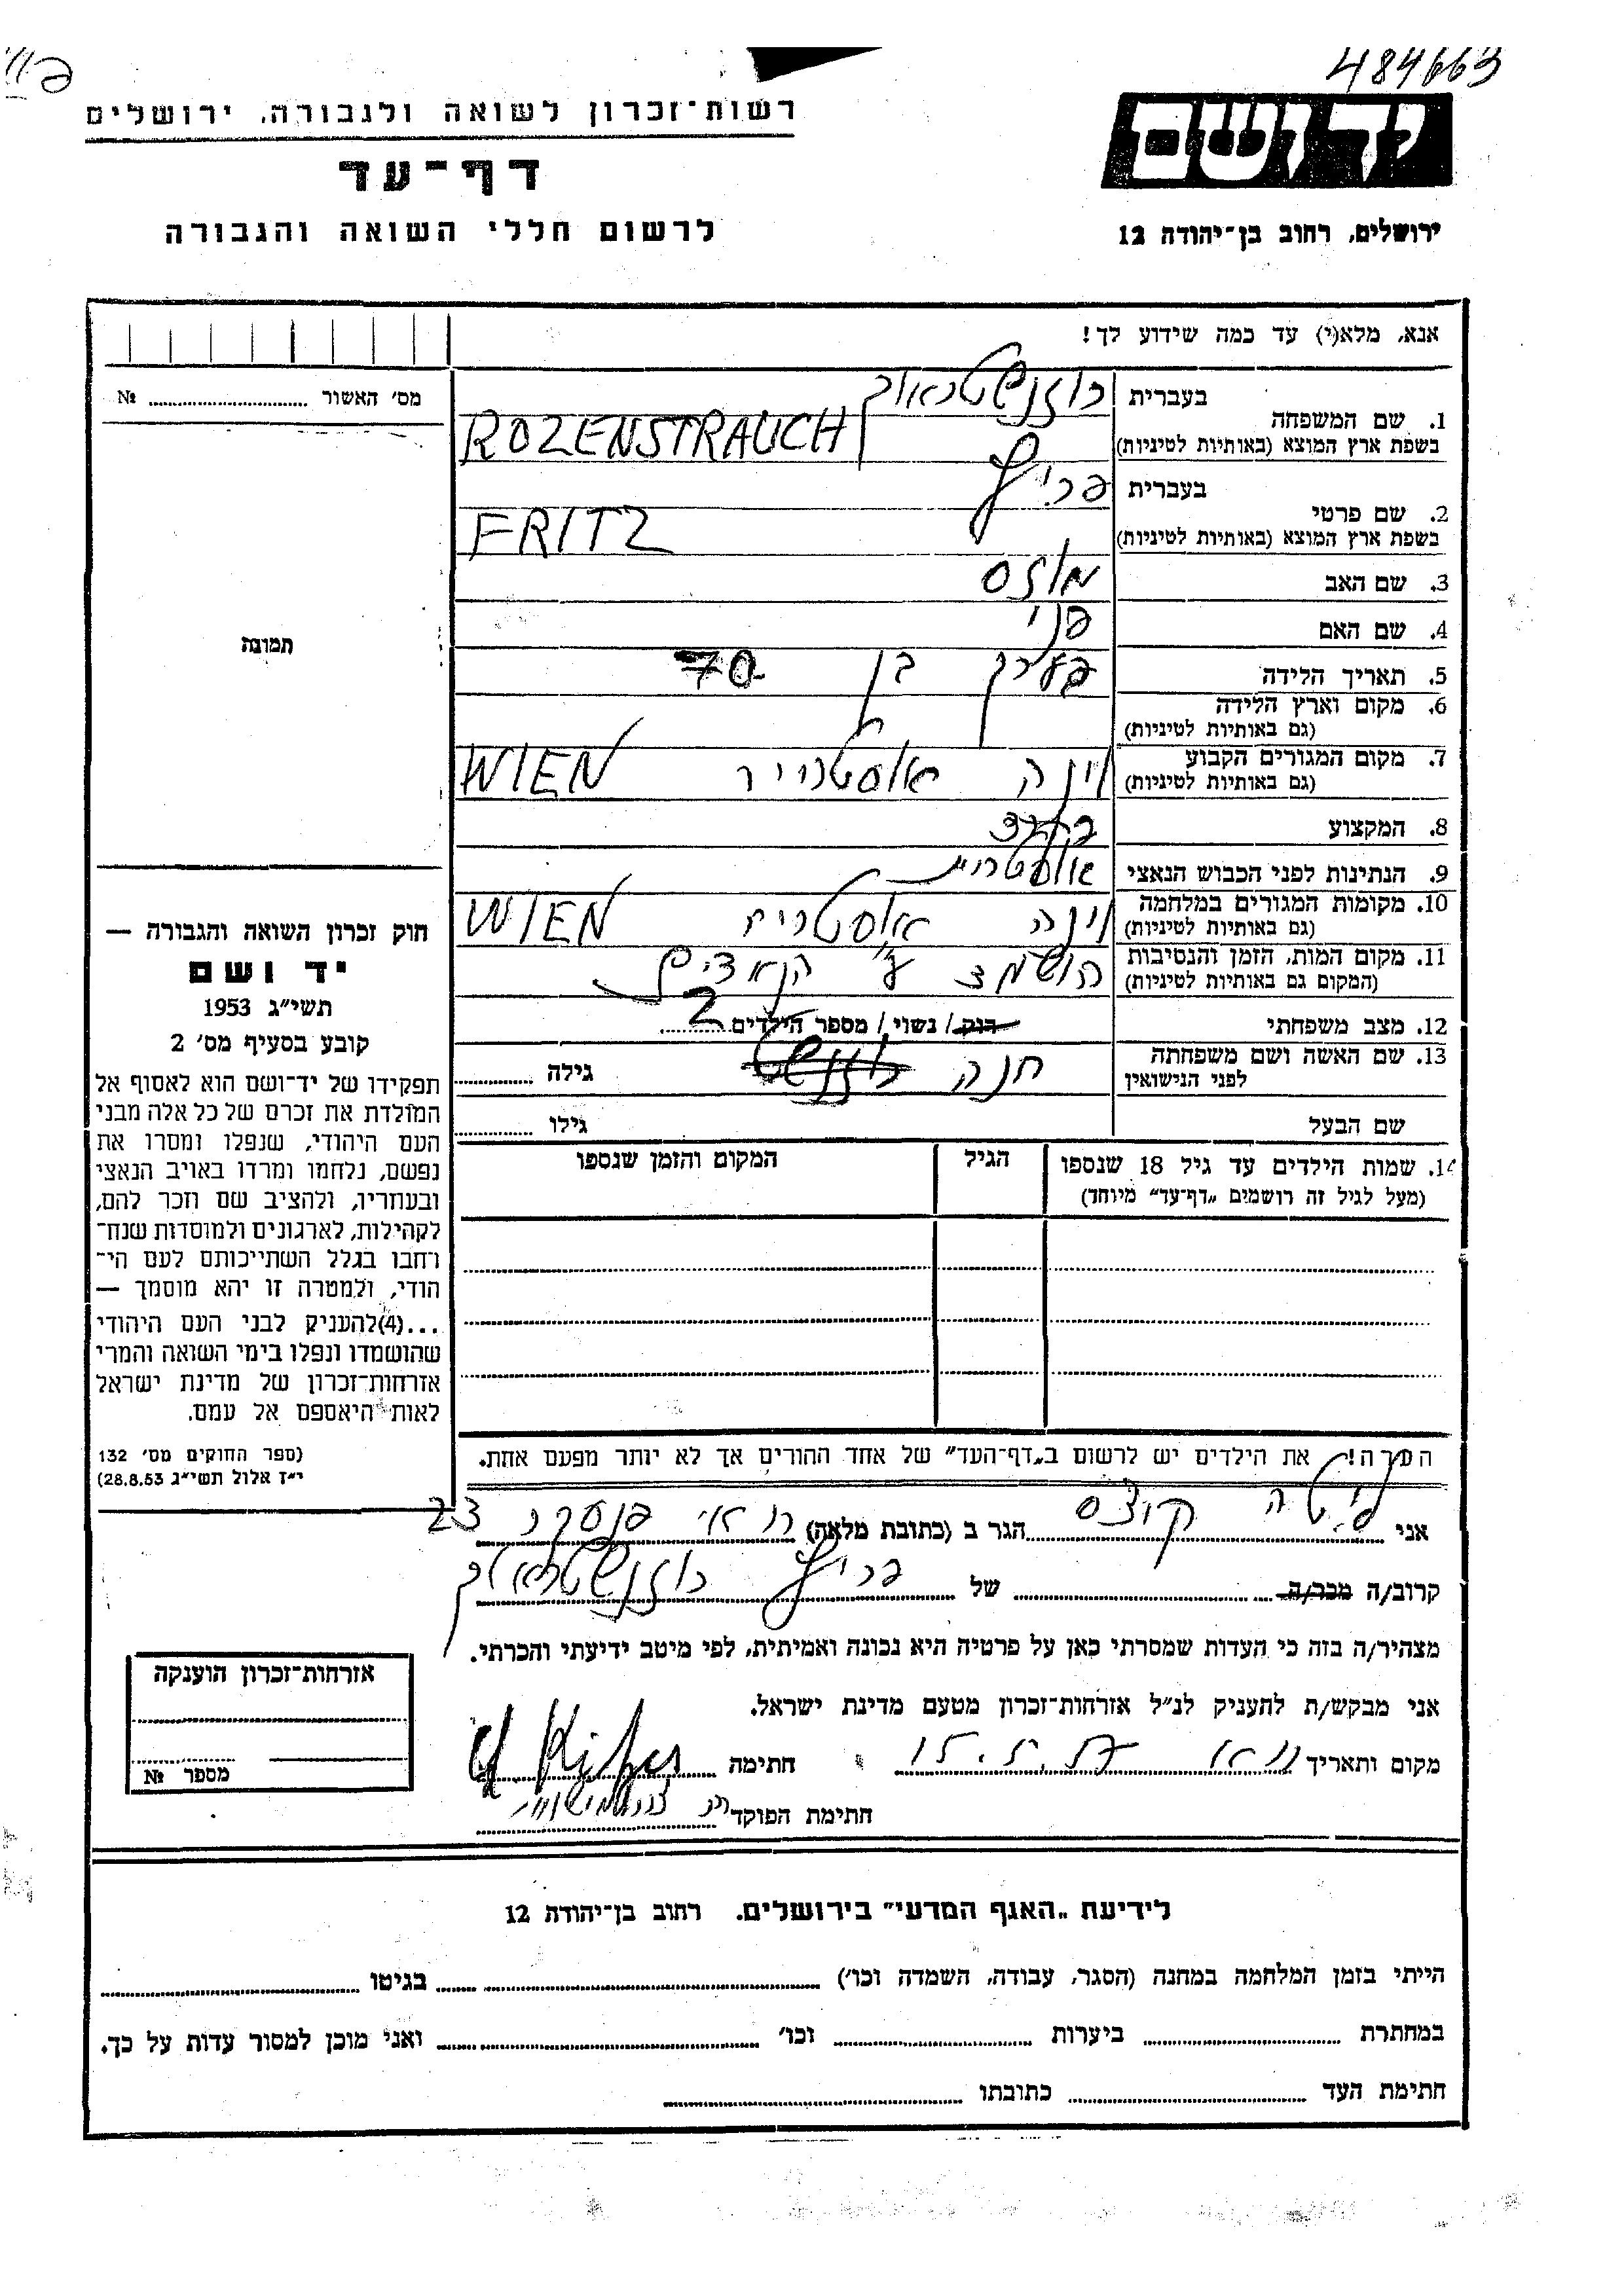 484663
רשות־זכרון לשואה ולגבורה, ירושלים
יד ושם
דף־עד
לרשום חללי השואה והגבורה
ירושלים, רחוב בן־יהודה 12
אנא, מלא(י) עד כמה שידוע לך!
מס׳ האשור № 
1. שם המשפחה
בעברית רוזנשטראוך
בשפת ארץ המוצא (באותיות לטיניות) ROZENSTRAUCH
2. שם פרטי
בעברית פריץ
בשפת ארץ המוצא (באותיות לטיניות) FRITZ
3. שם האב
4. שם האם פני
5. תאריך הלידה בערך בן 70
6. מקום וארץ הלידה
(גם באותיות לטיניות)
7. מקום המגורים הקבוע וינה WIEN
(גם באותיות לטיניות)
8. המקצוע
9. הנתינות לפני הכבוש הנאצי אוסטרית
10. מקומות המגורים במלחמה וינה אוסטריה WIEN
(גם באותיות לטיניות)
11. מקום המות, הזמן והנסיבות הושמד ע״י הנאצים
(המקום גם באותיות לטיניות)
12. מצב משפחתי רוק / נשוי / מספר הילדים 2
13. שם האשה ושם משפחתה
לפני הנישואין חנה גילה
שם הבעל גילו
14. שמות הילדים עד גיל 18 שנספו הגיל המקום והזמן שנספו
(מעל לגיל זה רושמים „דף־עד״ מיוחד)
הערה! את הילדים יש לרשום ב„דף־העד״ של אחד ההורים אך לא יותר מפעם אחת.
תמונה
חוק זכרון השואה והגבורה —
יד ושם
תשי״ג 1953
קובע בסעיף מס׳ 2
תפקידו של יד־ושם הוא לאסוף אל
המולדת את זכרם של כל אלה מבני
העם היהודי, שנפלו ומסרו את
נפשם, נלחמו ומרדו באויב הנאצי
ובעוזריו, ולהציב שם וזכר להם,
לקהילות, לארגונים ולמוסדות שנח־
רחבו בגלל השתייכותם לעם הי־
הודי, ולמטרה זו יהא מוסמך —
...(4)להעניק לבני העם היהודי
שהושמדו ונפלו בימי השואה והמרי
אזרחות־זכרון של מדינת ישראל
לאות היאספם אל עמם.
(ספר החוקים מס׳ 132
י״ז אלול תשי״ג 28.8.53)
אני הגר ב (כתובת מלאה) 23
קרוב/ה מכר/ה של פריץ רוזנשטראוך
מצהיר/ה בזה כי העדות שמסרתי כאן על פרטיה היא נכונה ואמיתית, לפי מיטב ידיעתי והכרתי.
אני מבקש/ת להעניק לנ״ל אזרחות־זכרון מטעם מדינת ישראל.
מקום ותאריך חתימה
חתימת הפוקד
אזרחות־זכרון הוענקה
מספר №
לידיעת „האגף המדעי״ בירושלים. רחוב בן־יהודה 12
הייתי בזמן המלחמה במחנה (הסגר, עבודה, השמדה וכו׳) בגיטו
במחתרת ביערות וכו׳ ואני מוכן למסור עדות על כך.
חתימת העד כתובתו